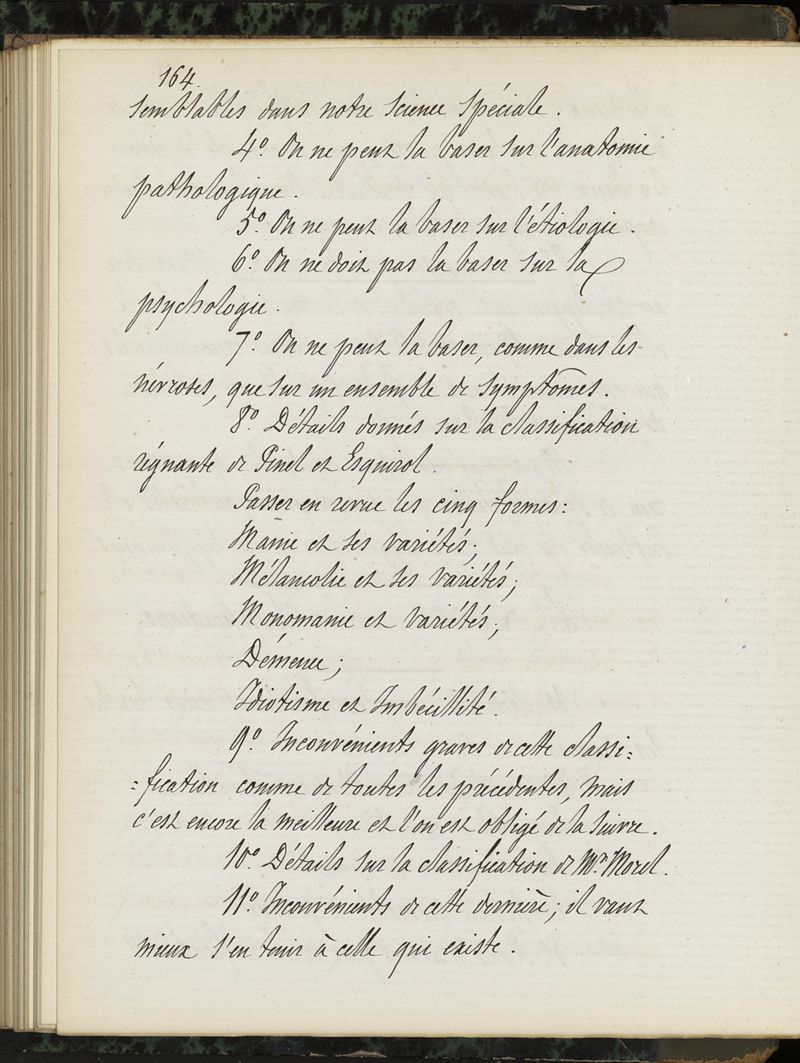 164.
semblables dans notre science spéciale.
4º. On ne peut la baser sur l'anatomie
pathologique.
5º. On ne peut la baser sur l'étiologie.
6º. On ne doit pas la baser sur la
psychologie.
7º. On ne peut la baser, comme dans les
névroses, que sur un ensemble de symptômes.
8º. Détails donnés sur la classification
régnante de Pinel et Esquirol.
Passer en revue les cinq formes:
Manie et ses variétés;
Mélancolie et ses variétés;
Monomanie et variétés;
Démence;
Idiotisme et Imbécillité.
9º. Inconvénients graves de cette classi=
=fication comme de toutes les précédentes, mais
c'est encore la meilleure et l'on est obligé de la suivre.
10º. Détails sur la classification de Mr. Morel.
11º. Inconvénients de cette dernière; il vaut
mieux s'en tenir à celle qui existe.